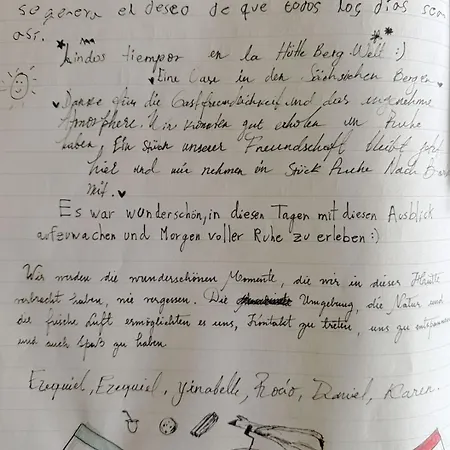 se genera el deseo de que todos los días sean
así.
Lindos tiempor en la Hütte Berg-Welt :)
Eine Case in den Sächsischen Bergen
Danke für die Gastfreundlichkeit und das angenehme
Atmosphere. Wir konnten gut erholen un Ruhe
haben, Ein Stück unserer Freundschaft bleibt
hier und wir nehmen ein Stück Ruhe Nach
mit.
Es war wunderschön, in diesen Tagen mit diesen Ausblick
aufzuwachen und Morgen voller Ruhe zu erleben :)
Wir werden die wunderschönen Momente, die wir in dieser Hütte
verbracht haben, nie vergessen. Die Umgebung, die Natur und
die frische Luft ermöglichten es uns, Kontakt zu treten, uns zu entspannen
und auch Spaß zu haben.
Ezequiel, Ezequiel, Yinabelle, Rocío, Daniel, Karen.